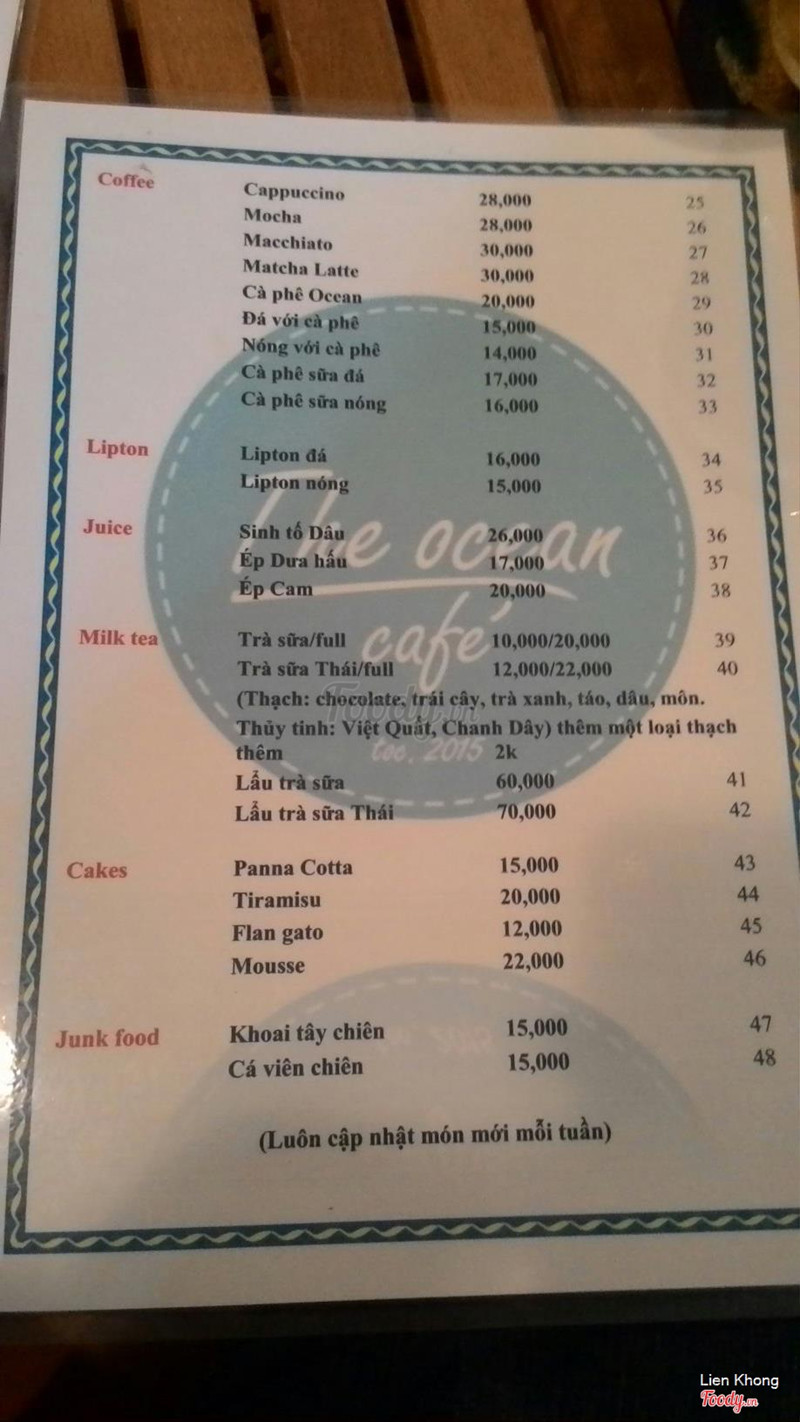 Coffee Cappuccino 28,000 25
Mocha 28,000 26
Macchiato 30,000 27
Matcha Latte 30,000 28
Cà phê Ocean 20,000 29
Đá với cà phê 15,000 30
Nóng với cà phê 14,000 31
Cà phê sữa đá 17,000 32
Cà phê sữa nóng 16,000 33
Lipton Lipton đá 16,000 34
Lipton nóng 15,000 35
Juice Sinh tố Dâu 26,000 36
Ép Dưa hấu 17,000 37
Ép Cam 20,000 38
The ocean
café
Milk tea Trà sữa/full 10,000/20,000 39
Trà sữa Thái/full 12,000/22,000 40
(Thạch: chocolate, trái cây, trà xanh, táo, dâu, môn.
Thủy tinh: Việt Quất, Chanh Dây) thêm một loại thạch
thêm 2k
Foody.vn
2015
Lẩu trà sữa 60,000 41
Lẩu trà sữa Thái 70,000 42
Cakes Panna Cotta 15,000 43
Tiramisu 20,000 44
Flan gato 12,000 45
Mousse 22,000 46
Junk food Khoai tây chiên 15,000 47
Cá viên chiên 15,000 48
(Luôn cập nhật món mới mỗi tuần)
Lien Khong
Foody.vn